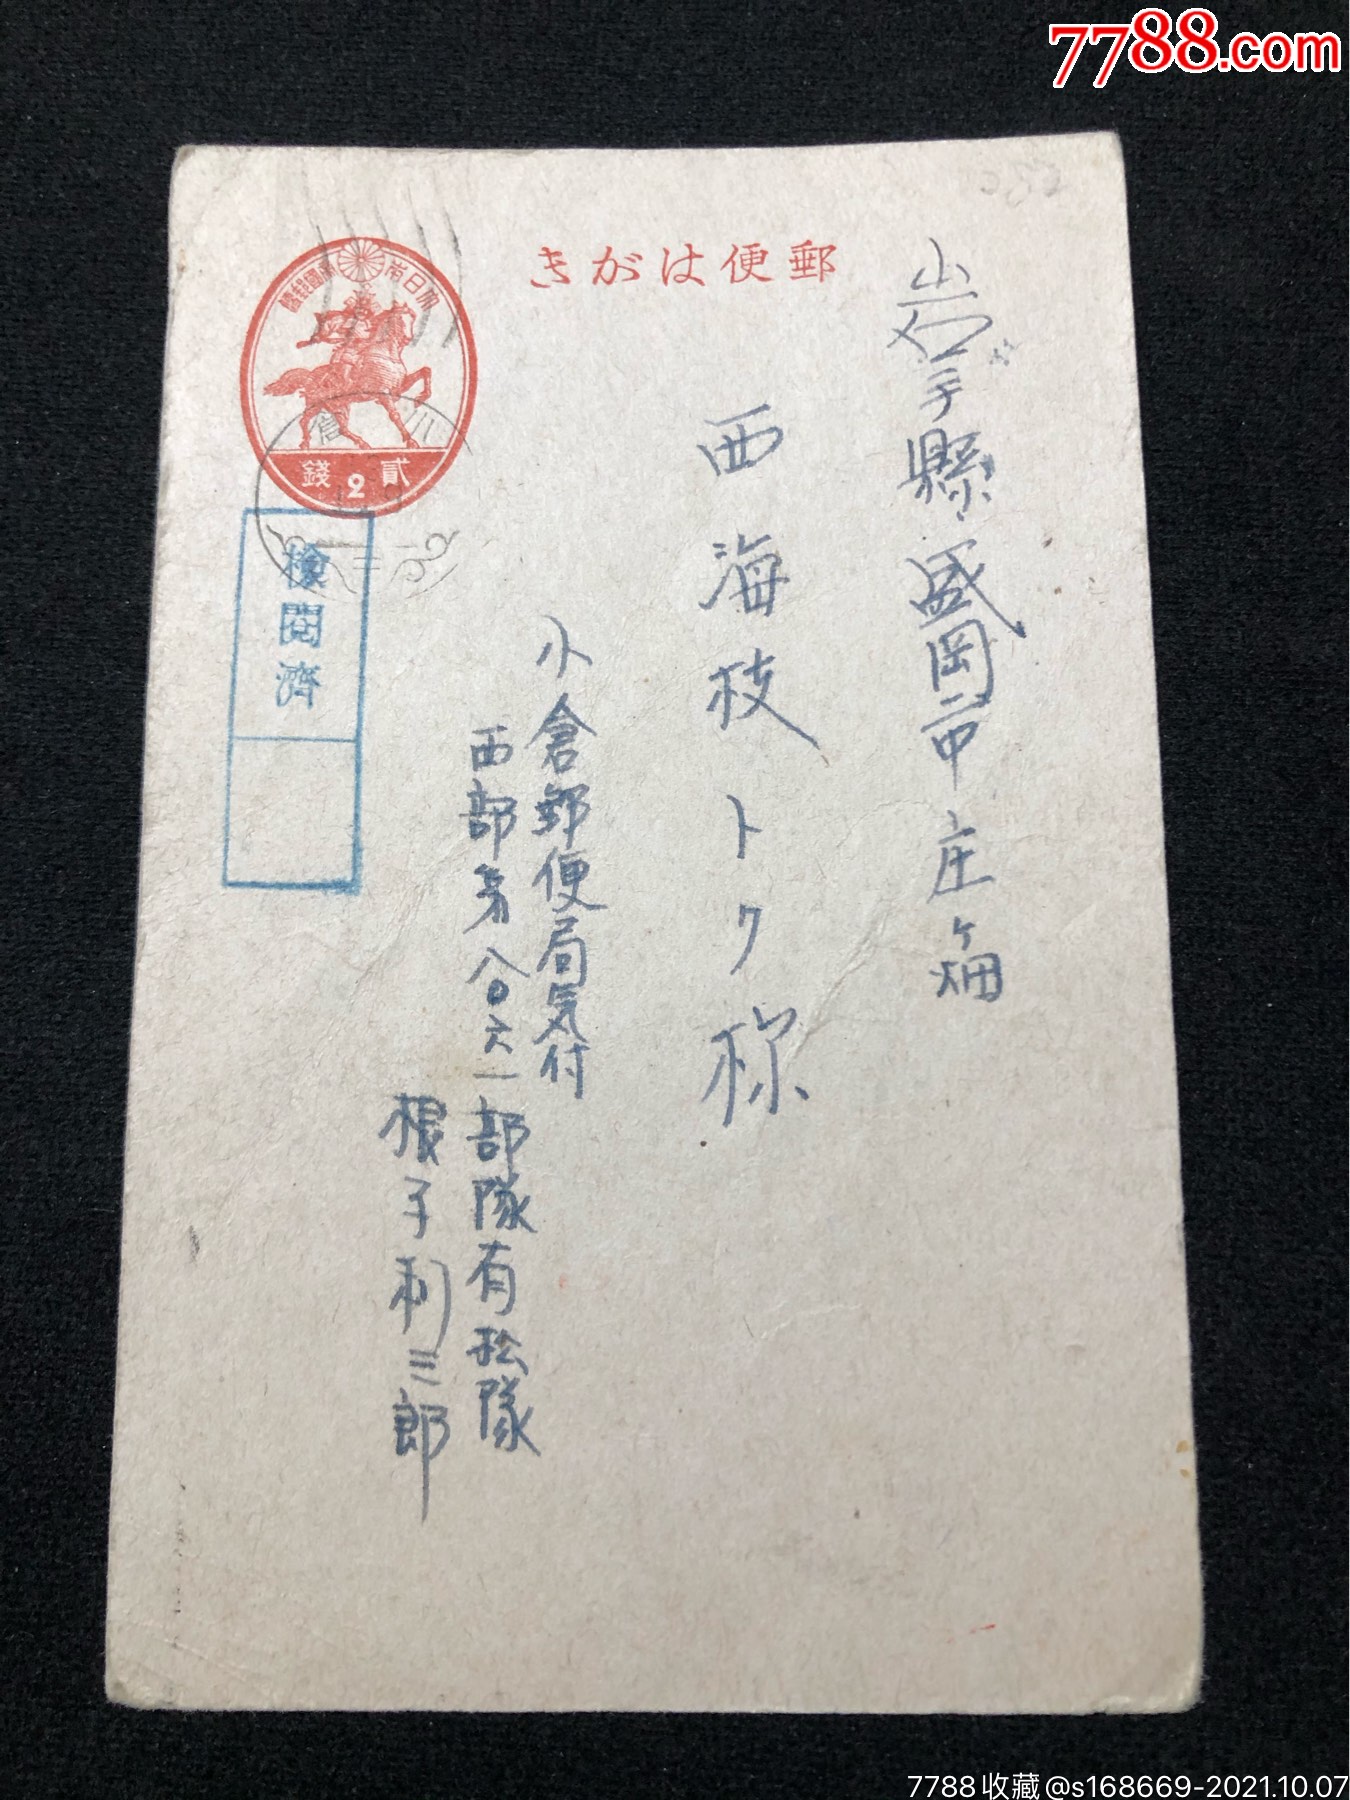 7788.com
郵便はがき
大日本帝國郵便
貳2錢
小倉
検閲濟
岩手縣盛岡市庄ヶ畑
西海枝トク様
小倉郵便局気付
西部第八〇六一部隊有松隊
根子利三郎
7788收藏@s168669-2021.10.07